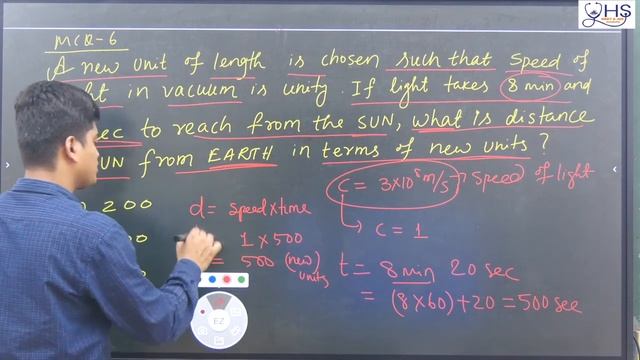 MCQ-6
A new unit of length is chosen such that speed of
in vacuum is unity. If light takes 8 min and
sec to reach from the SUN, what is distance
SUN from EARTH in terms of new units?
200
d = speed × time
1 × 500
= 500 (new) units
C = 3×10⁸ m/s → speed of light
→ C = 1
t = 8 min 20 sec
= (8×60) + 20 = 500 sec
EZ
HS